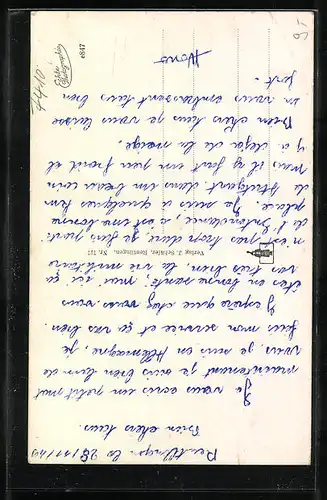 Reutlingen le 28/11/49
Bien chers tous.
Je vous écris un petit mot
maintenant je suis bien loin de
vous. je suis en Allemagne, je
fais mon service et ça va bien
J'espère que chez vous vous
êtes en bonne santé. ici moi ça
va très bien. la vie militaire
n'est pas trop dure je suis parti
de l'Intendance, c'est une bonne
place. Je suis à quelques km
de Stuttgart dans un beau coin
mais il y fait un peu froid et
il y a déjà de la neige.
Bien chers tous je vous laisse
en vous embrassant tous bien
fort.
Nono
Verlag Z. Schäfer, Reutlingen, Nr. 121
Echte Photographie
e847